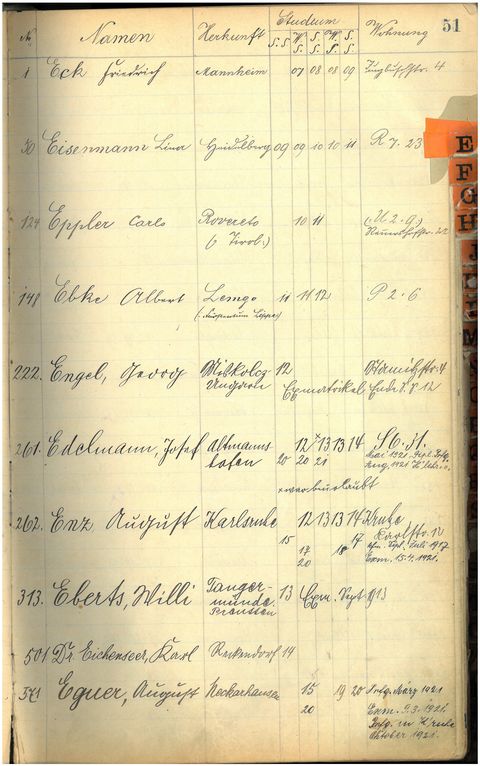 Studium
51
No Namen Herkunft S.S. W.S. S.S. W.S. S.S. Wohnung
1 Eck Friedrich Mannheim 07 08 08 09 Jungbuschstr. 4
30 Eisenmann Lina Heidelberg 09 09 10 10 11 R 7. 23
124 Eppler Carlo Rovereto 10 11 (U 2. 9.)
(Tirol.)
148 Ebke Albert Lemgo 11 11 12 P 2. 6
(Fürstentum Lippe)
222. Engel, Georg Miskolcz 12 Stamitzstr. 4
Ungarn Exmatrikel Ende S. S. 12
261. Edelmann, Josef Altmanns- 12 13 13 14 St. 31.
hofen 20 20 21 Mai 1921
beurlaubt
262. Enz August Karlsruhe 12 13 13 14 K'ruhe
15 17 Karlstr. 12
17 18 Juli 1917
20 Exm. 15.4.1921.
313. Eberts, Willi Tanger- 13 Exm. Sept 1913
münde.
Preussen
501 Dr. Eichenseer, Karl Reckendorf 14
571 Egner, August Neckarhausen 15 19 20 März 1921
20 Exm. 9.3.1921.
in K'ruhe
Oktober 1921.
E
F
G
H
J
M